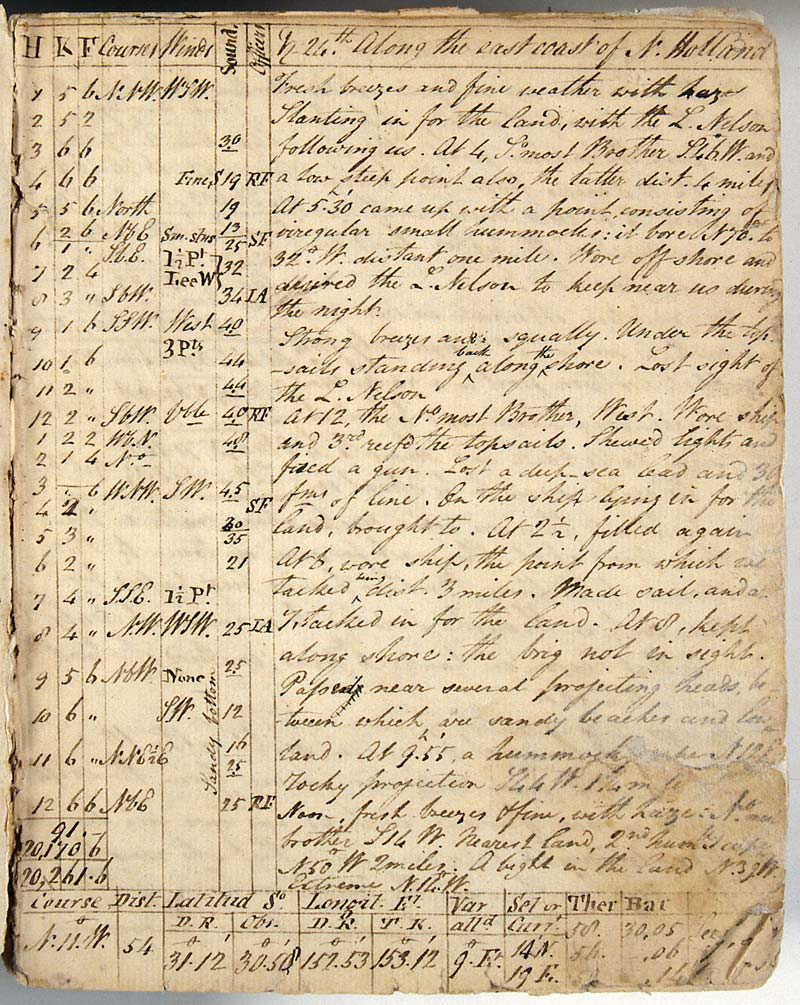 H K F Courses Winds Sound. Officers ♄ 24th Along the east coast of N. Holland
1 5 6 N.N.W. W.S.W. Fresh breezes and fine weather with haze
2 5 2 Slanting in for the land, with the L. Nelson
3 6 6 30 following us. At 4, So. most Brother S. 46 W. and
4 6 6 Fine S 19 RF a low steep point also, the latter dist. 4 miles
5 5 6 North 19 At 5h.30 came up with a point, consisting of
6 2 6 NbE Sm. stns 13 SF irregular small hummocks: it bore N.78° to
1 " SbE. 1½ Pt. 25 32° W. distant one mile. Wore off shore and
7 2 4 Lee W 32 desired the L. Nelson to keep near us during
8 3 " SbW. 34 IA the night.
9 1 6 SSW. West 40 Strong breezes and squally. Under the top-
3 Pts
10 1 6 44 -sails standing back along the shore. Lost sight of
11 2 " 44 the L. Nelson
12 2 " SbW. Vble 40 RF At 12, the No. most Brother, West. Wore ship
1 2 2 WbN. 48 and 3rd. reefd. the topsails. Shewed lights and
2 1 4 No. fired a gun. Lost a deep sea lead and 30
3 - 6 W.N.W. S.W. 45 fms of line. On the ship lying in for the
4 2 " SF
5 3 " 30 35 land, brought to. At 2½, filled again
6 2 " 21 At 6, wore ship, the point from which we
7 4 " SSE. 1½ Pt. tacked being dist. 3 miles. Made sail, and at
8 4 " N.W. W.S.W. 25 IA 7, tacked in for the land. At 8, kept
along shore: the brig not in sight.
9 5 6 NbW None 25 Passed near several projecting heads, be-
10 6 " SW. Sandy bottom 12 -tween which are sandy beaches and low
11 6 " N.N.E½E 16 25 land. At 9h.55, a hummock N.12 E.
rocky projection S44 W. 1¼ m
12 6 6 NbE 25 RF Noon, fresh breezes & fine, with haze: No. most
91.- brother S14 W. Nearest land, 2nd. humk. cape
20,170.6 N50° W 2 miles. A bight in the land N32 W.
20,261.6 Extreme N.11 W.
Course Dist. Latitud So. Longit. Et. Var Set or Ther Bar
D.R. Obs. D.R. T.K. alld Curt. 58. 30.05
N. 11. W. 54 31°.12' 30°.58' 152°.53' 153°.12' 9. Et. 14 N. 56. .06
19 E. .14